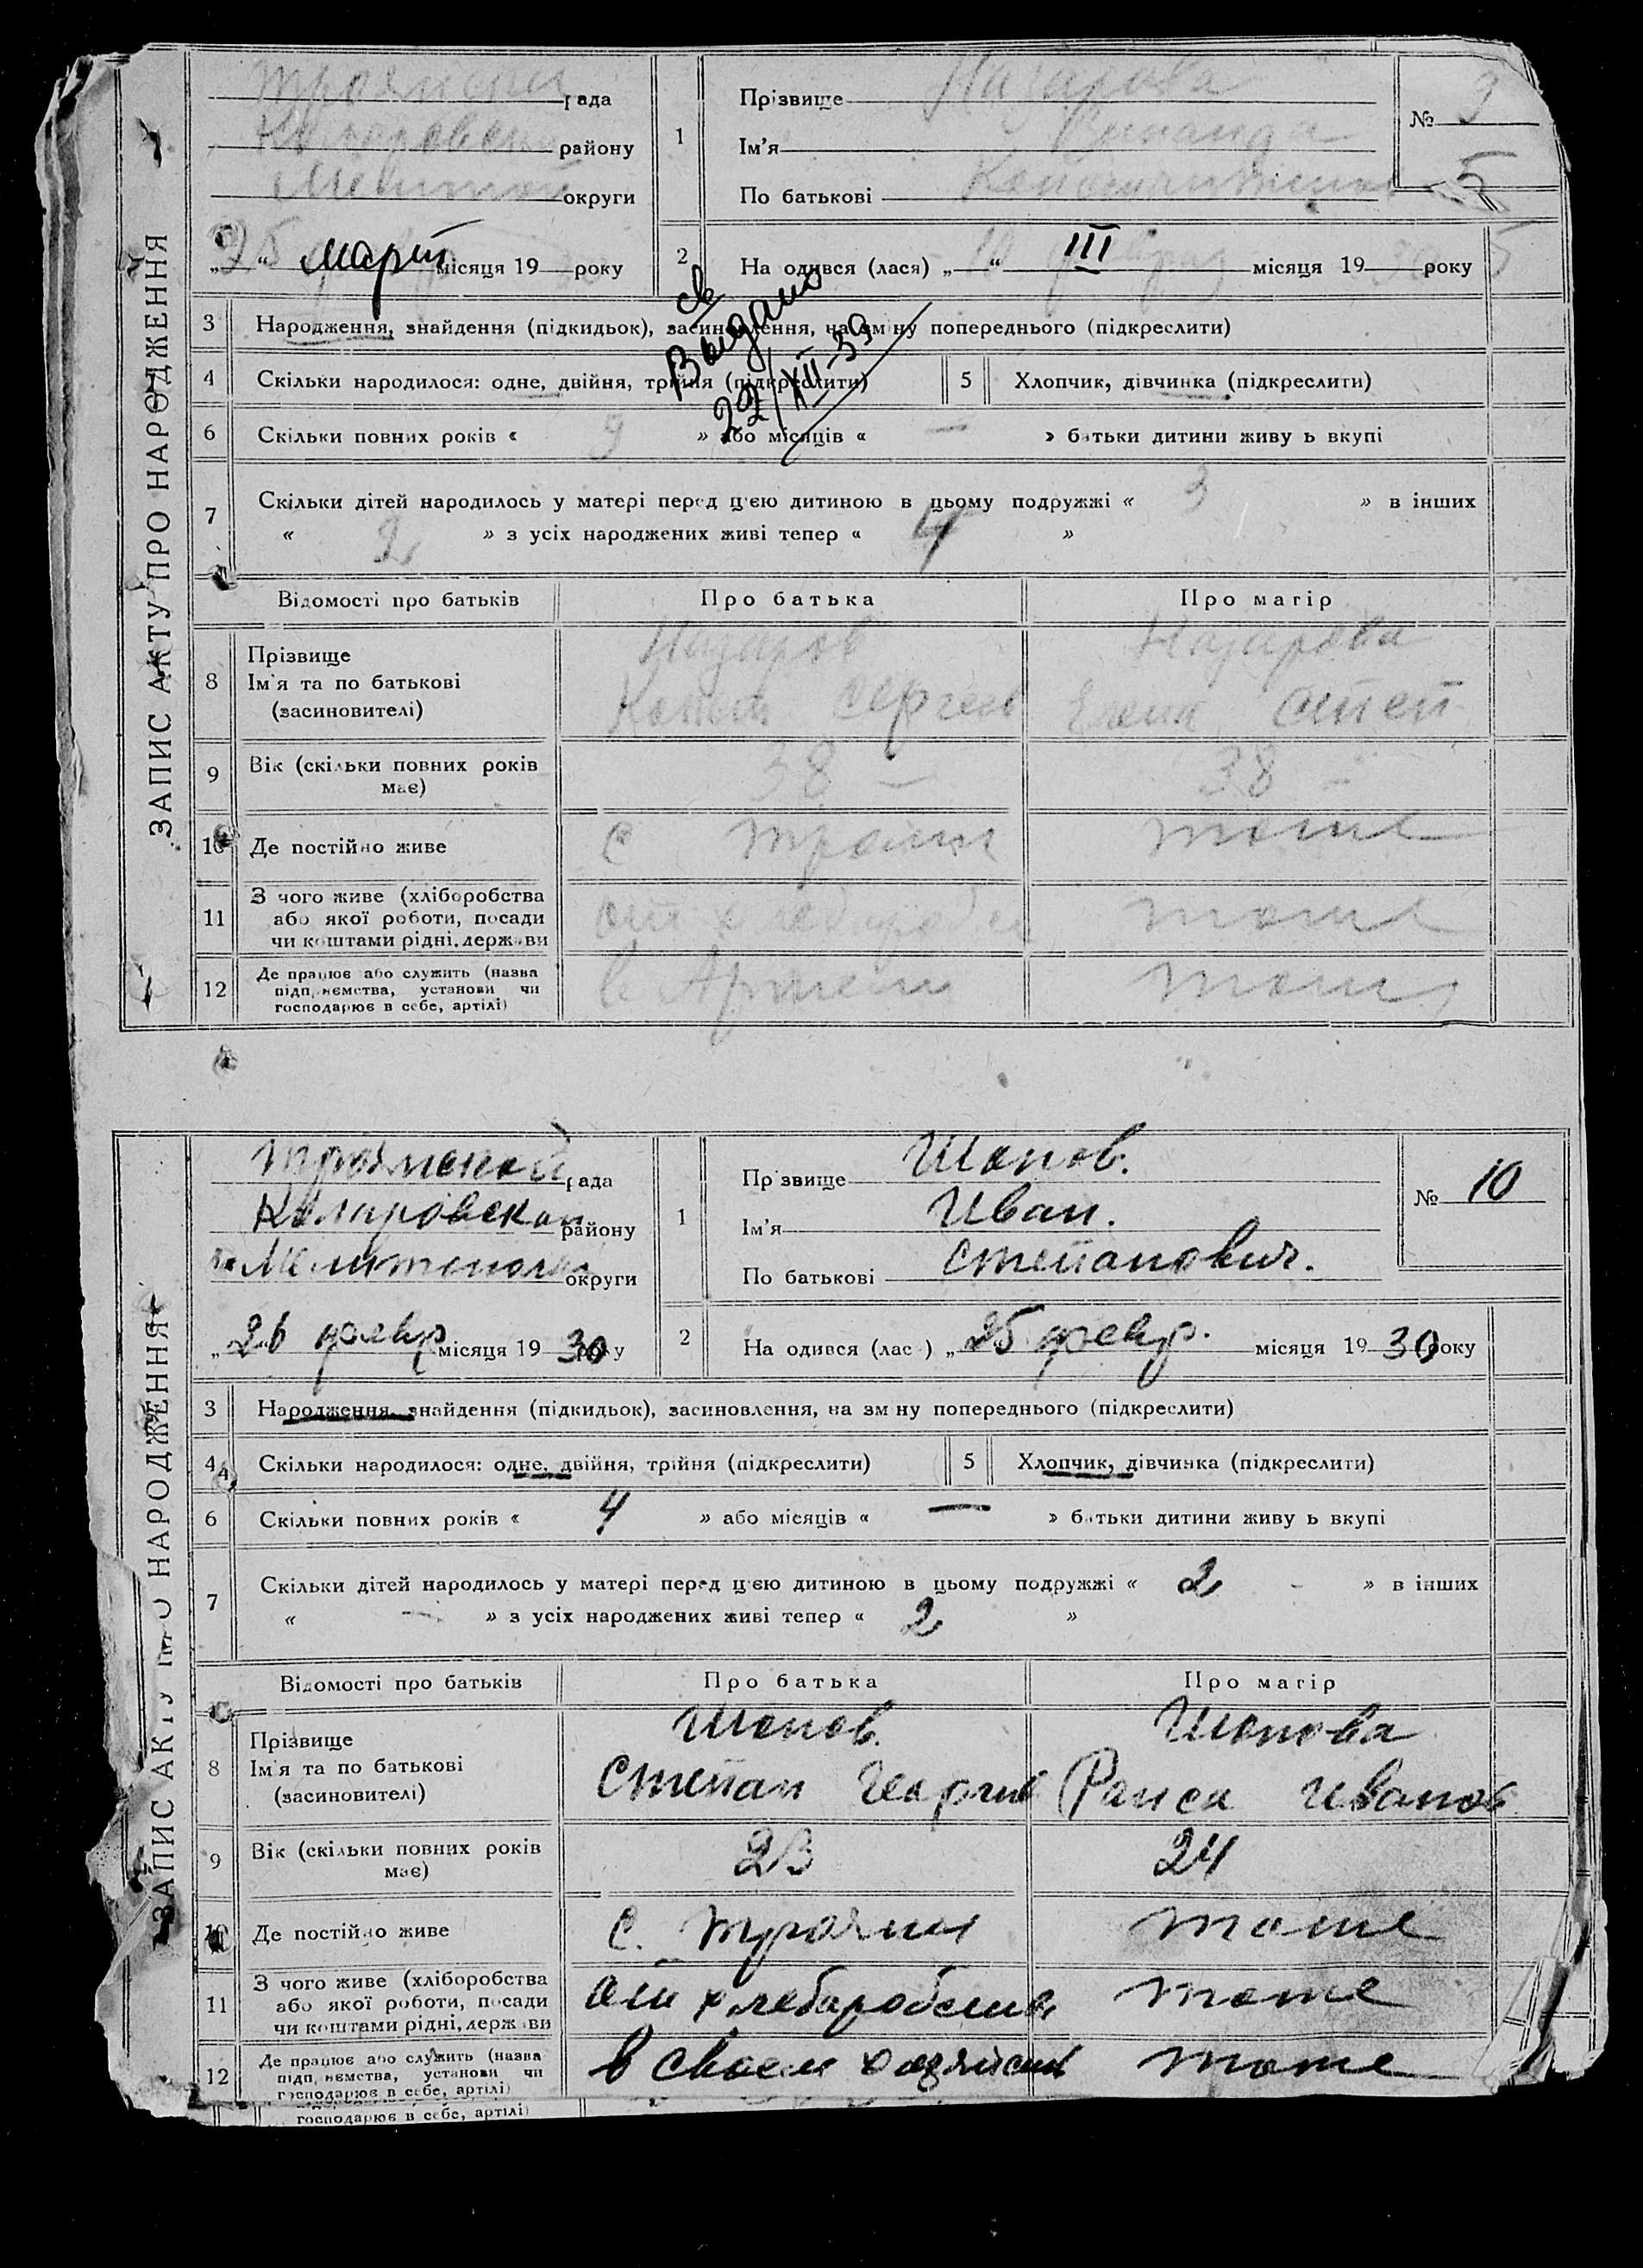 ЗАПИС АКТУ ПРО НАРОДЖЕННЯ
рада
району
округи
„25“ март місяця 19 року
1
Прізвище Назарова
Ім'я
По батькові
№ 9
5
2
На одився (лася) „10“ III місяця 19 30 року
5
св
Выдано
22/XII-39
3 Народження, знайдення (підкидьок), засиновлення, на зм ну попереднього (підкреслити)
4 Скільки народилося: одне, двійня, трійня (підкреслити)
5 Хлопчик, дівчинка (підкреслити)
6 Скільки повних років « 9 » або місяців « — » батьки дитини живу ь вкупі
7 Скільки дітей народилось у матері перед ц'єю дитиною в цьому подружжі « 3 » в інших
« 2 » з усіх народжених живі тепер « 4 »
Відомості про батьків Про батька Про матір
8 Прізвище Назаров Назарова
Ім'я та по батькові сергеев Елена степ
(засиновителі)
9 Вік (скільки повних років має) 38 — 38 —
10 Де постійно живе с троян тоже
11 З чого живе (хліборобства або якої роботи, посади чи коштами рідні, держави тоже
12 Де працює або служить (назва підп, иємства, установи чи господарює в себе, артілі) в Артели тоже
ЗАПИС АКТУ ПРО НАРОДЖЕННЯ
троянской рада
Коларовскаи району
Мелитополя округи
„26 февр місяця 19 30 року
1
Пр звище Шопов.
Ім'я Иван.
По батькові степанович.
№ 10
2
На одився (лас ) „25 февр. місяця 19 30 року
3 Народження, знайдення (підкидьок), засиновлення, на зм ну попереднього (підкреслити)
4 Скільки народилося: одне, двійня, трійня (підкреслити)
5 Хлопчик, дівчинка (підкреслити)
6 Скільки повних років « 4 » або місяців « — » батьки дитини живу ь вкупі
7 Скільки дітей народилось у матері перед ц'єю дитиною в цьому подружжі « 2 » в інших
« — » з усіх народжених живі тепер « 2 »
Відомості про батьків Про батька Про матір
8 Прізвище Шопов. Шопова
Ім'я та по батькові Степан Георгив Раиса Иванов
(засиновителі)
9 Вік (скільки повних років має) 23 24
10 Де постійно живе с. трояны тоже
11 З чого живе (хліборобства або якої роботи, посади чи коштами рідні, держави от хлебаробства тоже
12 Де працює або служить (назва підп, иємства, установи чи господарює в себе, артілі) в своем хозяйств тоже
господарює в себе, артілі)